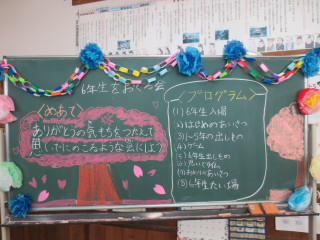 6年生をおくる会
〈めあて〉
ありがとうの気もちをつたえて
思いでにのこるような会にしよう
〈プログラム〉
(1)6年生入場
(2)はじめのあいさつ
(3)1~5年の出しもの
(4)ゲーム
(5)6年生出しもの
(6)思いで
(7)おわりのあいさつ
(8)6年生たい場